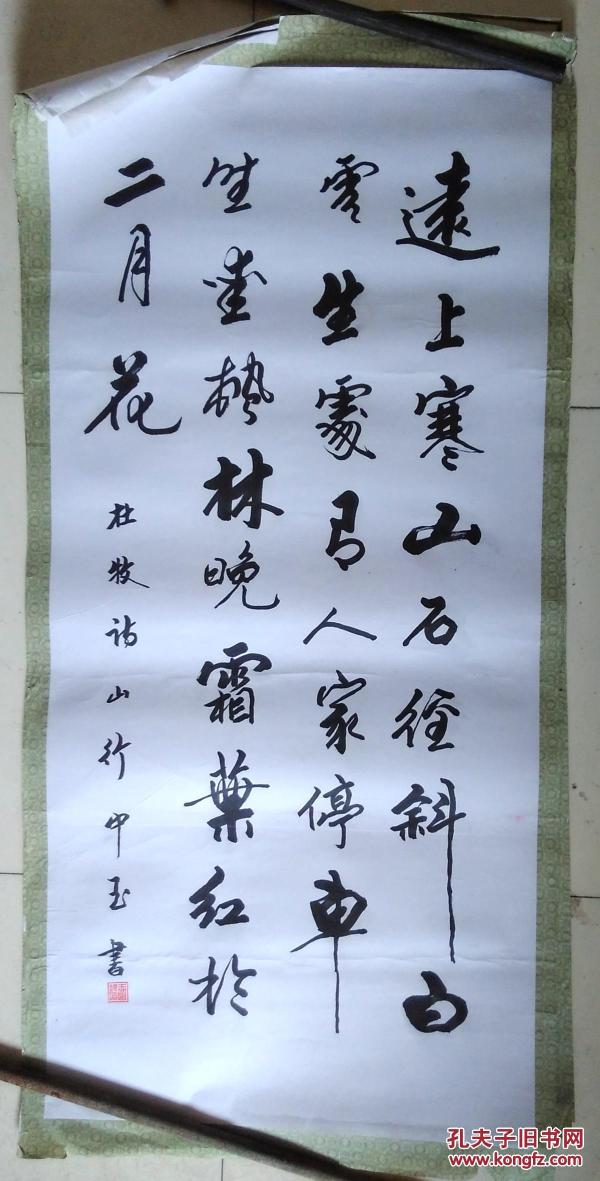 遠上寒山石徑斜白
雲生處有人家停車
坐愛楓林晚霜葉紅於
二月花
杜牧诗山行中玉書
孔夫子旧书网
www.kongfz.com